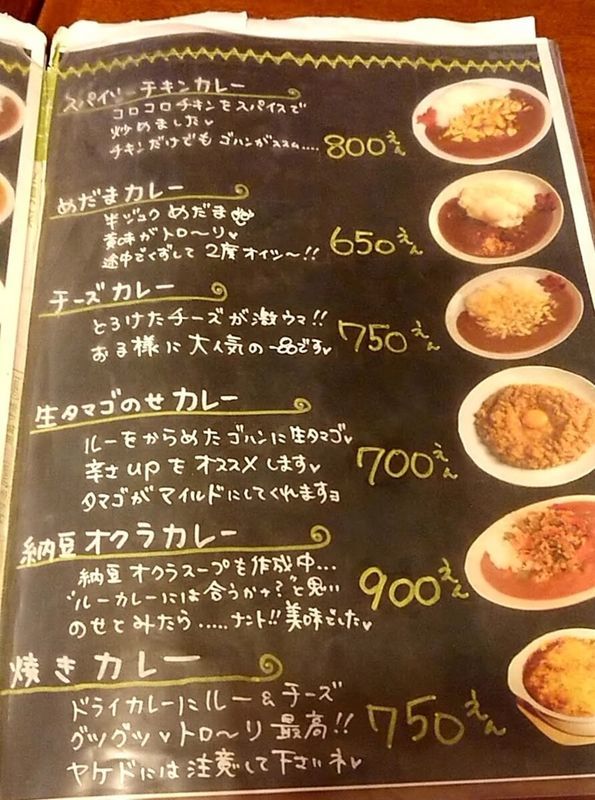 スパイシーチキンカレー
コロコロチキンをスパイスで
炒めました♥
チキンだけでもゴハンがススム....
800えん
めだまカレー
半ジュクめだま
黄味がトロ〜リ♥
途中でくずして 2度オイシ〜!!
650えん
チーズカレー
とろけたチーズが激ウマ!!
お子様に大人気の一品です♥
750えん
生タマゴのせカレー
ルーをからめたゴハンに生タマゴ♥
辛さupをオススメします♥
タマゴがマイルドにしてくれますヨ
700えん
納豆オクラカレー
納豆オクラスープも作成中...
"ルーカレーには合うかナ?"と思い
のせてみたら......ナント!!美味でした♥
900えん
焼きカレー
ドライカレーにルー&チーズ
グツグツ♥トロ〜リ 最高!!
ヤケドには注意して下さいネ♥
750えん